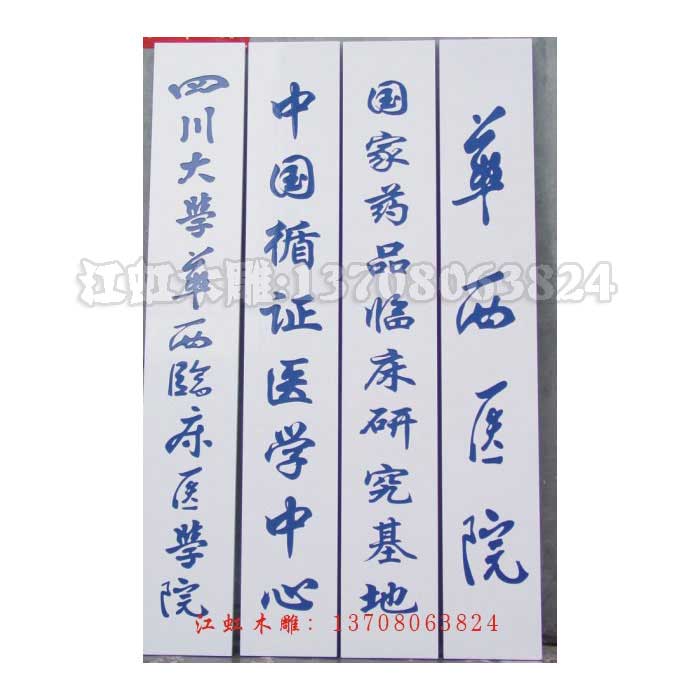 華西医院
国家药品临床研究基地
中国循证医学中心
四川大學華西臨床医學院
江虹木雕:13708063824
江虹木雕: 13708063824